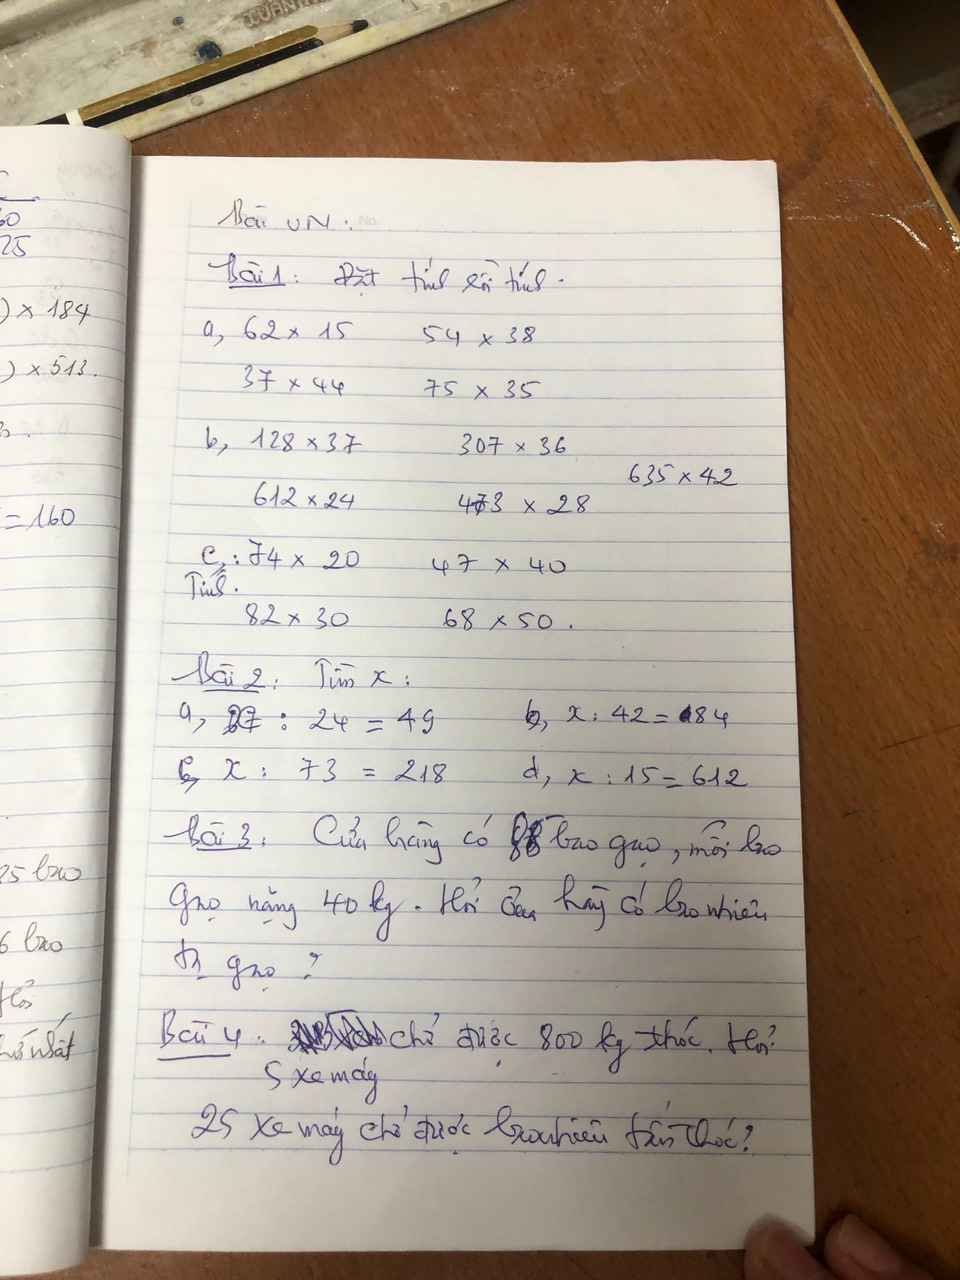 LUẬN
60
25
) x 184
) x 513.
= 160
25 bao
6 bao
Hỏi
thứ nhất
Bài VN:
Bài 1: Đặt tính rồi tính.
a, 62 x 15 54 x 38
37 x 44 75 x 35
b, 128 x 37 307 x 36
635 x 42
612 x 24 473 x 28
c,: 74 x 20 47 x 40
Tính.
82 x 30 68 x 50.
Bài 2: Tìm x:
a, : 24 = 49 b, x : 42 = 184
c, x : 73 = 218 d, x : 15 = 612
Bài 3: Cửa hàng có bao gạo, mỗi bao
gạo nặng 40 kg. Hỏi cửa hàng có bao nhiêu
tạ gạo?
Bài 4: chở được 800 kg thóc. Hỏi
5 xe máy
25 xe máy chở được bao nhiêu tấn thóc?